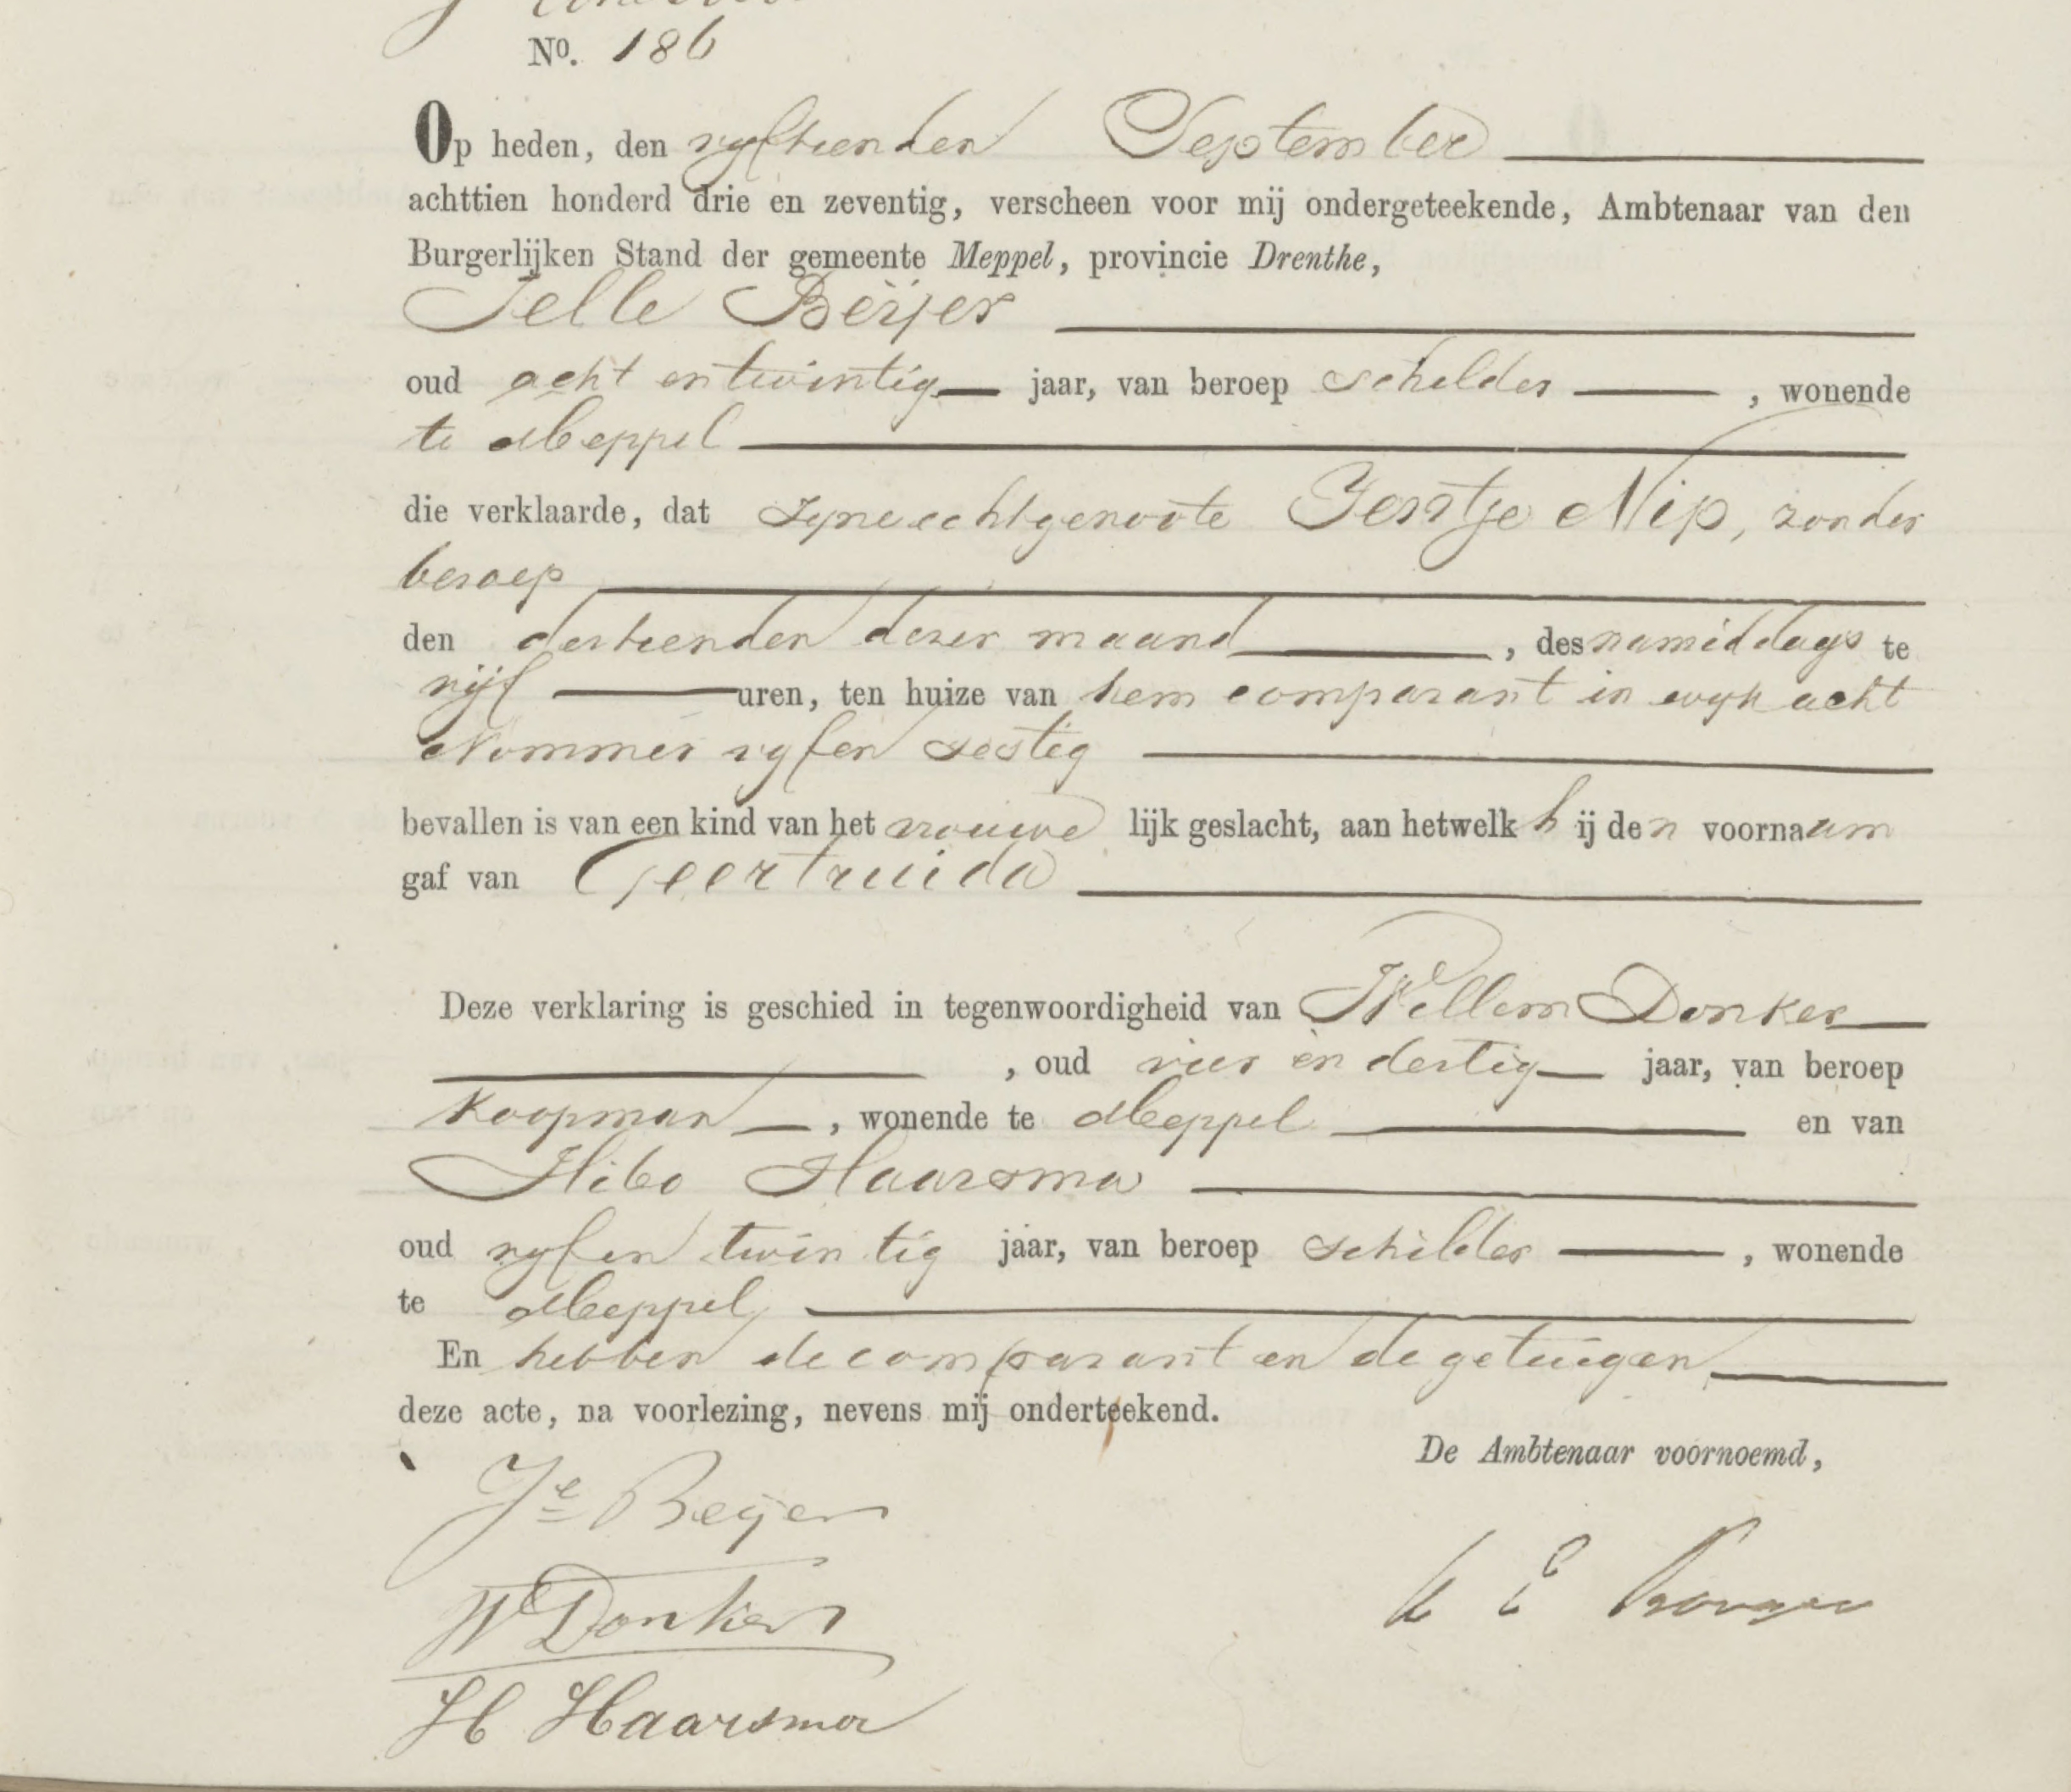 No. 186
Op heden, den vyftienden September
achttien honderd drie en zeventig, verscheen voor mij ondergeteekende, Ambtenaar van den
Burgerlijken Stand der gemeente Meppel, provincie Drenthe,
Jelle Beijer
oud acht en twintig jaar, van beroep schilder, wonende
te Meppel
die verklaarde, dat zyne echtgenoote Geertje Nip, zonder
beroep
den dertienden dezer maand, des namiddags te
vijf uren, ten huize van hem comparant in wyk acht
Nommer vyf en sestig
bevallen is van een kind van het vrouwelijk geslacht, aan hetwelk hij den voornaam
gaf van Geertruida
Deze verklaring is geschied in tegenwoordigheid van Willem Donker
, oud vier en dertig jaar, van beroep
Koopman, wonende te Meppel en van
Hibo Haarsma
oud vyf en twintig jaar, van beroep schilder, wonende
te Meppel
En hebben de comparant en de getuigen
deze acte, na voorlezing, nevens mij onderteekend.
De Ambtenaar voornoemd,
Je Beijer
W Donker
H Haarsma